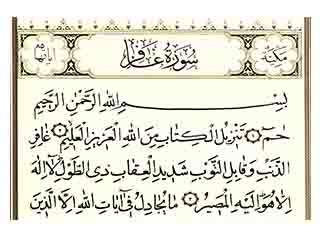 مكية سورة غافر آياتها ٨٥
بسم الله الرحمن الرحيم
حم تنزيل الكتاب من الله العزيز العليم غافر
الذنب وقابل التوب شديد العقاب ذي الطول لا اله
الا هو اليه المصير ما يجادل في آيات الله الا الذين